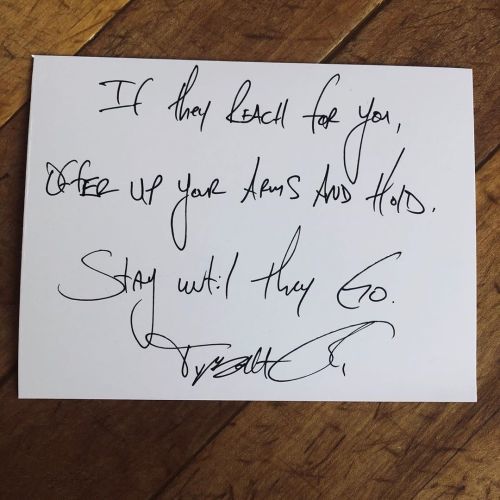 If they REACH for you,
OFFER UP your ARMS AND HOLD.
Stay until they Go.